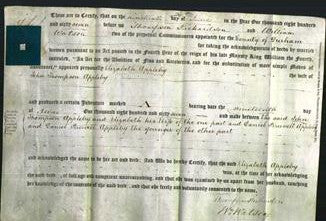 These are to Certify, that on the nineteenth day of
in the Year One thousand eight hundred
and sixty seven before us Thompson Richardson and William
Watson two of the perpetual Commissioners for the County of Durham
for taking the acknowledgments of deeds by married
women pursuant to an Act passed in the Fourth Year of the reign of his late Majesty King William the Fourth,
intituled, "An Act for the Abolition of Fines and Recoveries, and for the substitution of more simple Modes of
Assurance," appeared personally Elizabeth Appleby
the wife of
John Thompson Appleby
and produced a certain Indenture marked A bearing date the nineteenth day
of One thousand eight hundred and sixty seven and made between the said John
Thompson Appleby and Elizabeth his Wife of the one part and Daniel Appleby
and Daniel Appleby the younger of the other part
and acknowledged the same to be her act and deed: And we do hereby Certify, that the said Elizabeth Appleby
was, at the time of her acknowledging
the said deed, of full age and competent understanding, and that she was examined by us apart from her husband, touching
her knowledge of the contents of the said deed, and that she freely and voluntarily consented to the same.
Thompson Richardson
Wm Watson